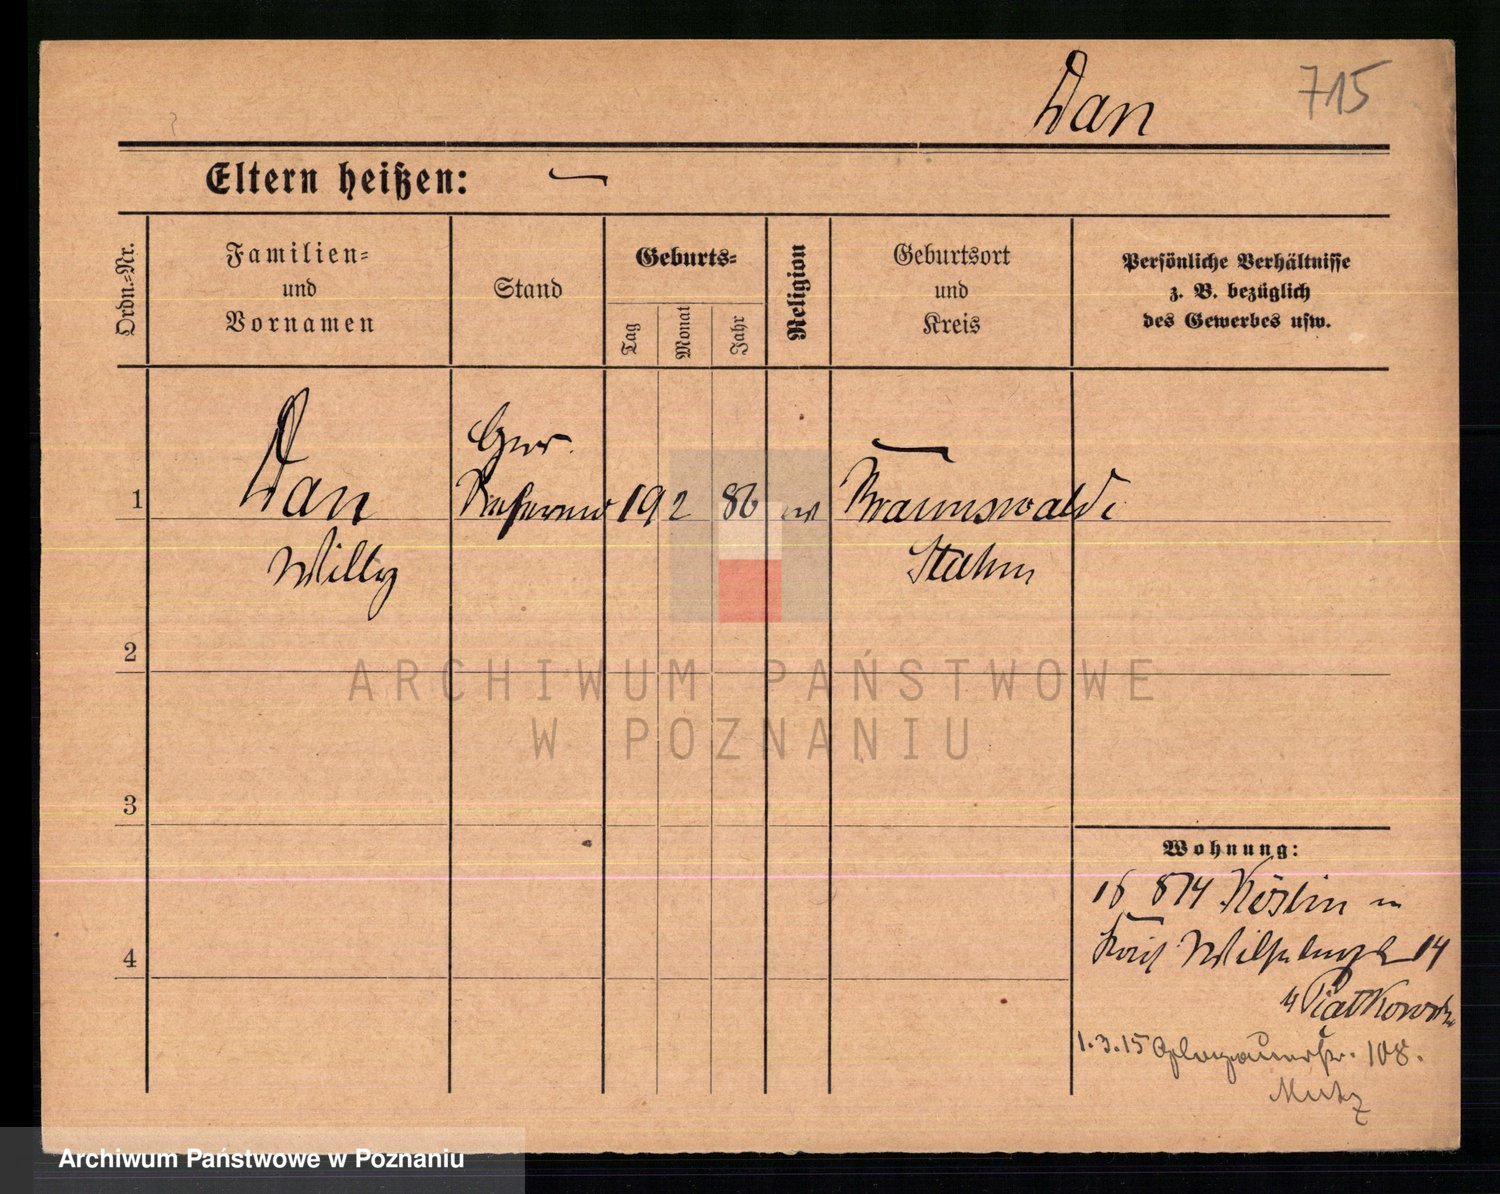 Dan 715
Eltern heißen: —
Ordn.=Nr.
Familien=
und
Vornamen
Stand
Geburts=
Tag
Monat
Jahr
Religion
Geburtsort
und
Kreis
Persönliche Verhältnisse
z. B. bezüglich
des Gewerbes usw.
1
Dan
Willy
Ger.
Referend
19 2 86 ev
Braunswalde
Stuhm
2
3
4
Wohnung:
Köslin
14
Piatkowski
1.3.15 Glogauerstr. 108.
ARCHIWUM PAŃSTWOWE
W POZNANIU
Archiwum Państwowe w Poznaniu